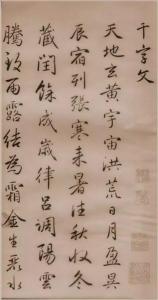 千字文
天地玄黄宇宙洪荒日月盈昃
辰宿列張寒来暑往秋收冬
藏閏餘成歲律吕調陽雲
騰致雨露結為霜金生麗水